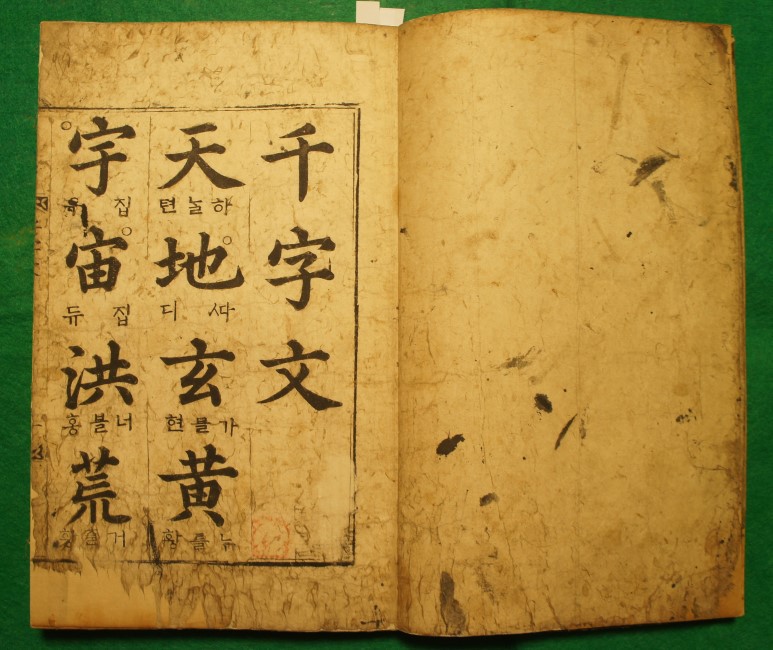 千字文
天 하놀 텬 地 ᄯᅡ 디 玄 가믈 현 黄 누를 황
宇 집 우 宙 집 듀 洪 너블 홍 荒 거